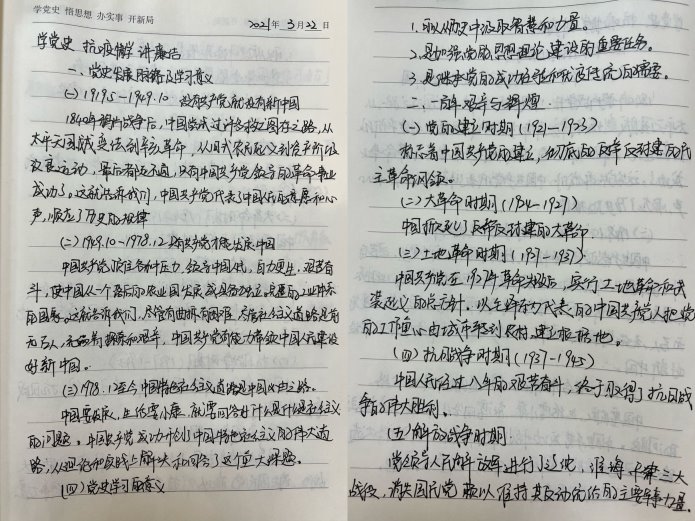 学党史 悟思想 办实事 开新局
2021年3月22日
学党史 抗疫情 讲廉洁
一、党史发展脉络及学习意义
(一) 1919.5—1949.10 没有共产党就没有新中国
1840年鸦片战争后,中国尝试过许多救亡图存之路,从
太平天国到变法到辛亥革命,从旧式农民起义到资产阶级
改良运动,最后都走不通,只有中国共产党领导的革命事业
成功了。这就告诉我们,中国共产党代表了中国人民的意愿和心
声,顺应了历史的规律
(二) 1949.10—1978.12 只有共产党才能发展中国
中国共产党顶住各种压力,领导中国人民,自力更生,艰苦奋
斗,使中国从一个落后的农业国发展成具有独立完整的工业体系
的国家。这就告诉我们,尽管有曲折有困难,尽管社会主义道路是前
无古人,充满着探索和艰辛,中国共产党有能力带领中国人民建设
好新中国。
(三) 1978.12至今 中国特色社会主义道路是中国必由之路。
中国要发展,且还要小康,就需回答好什么是什么是社会主义
的问题。中国共产党成功开创了中国特色社会主义的伟大道
路,从理论和实践上解决和回答了这个重大课题。
(四) 党史学习的意义
1. 可从历史中汲取智慧和力量。
2. 是加强党的思想理论建设的重要任务。
3. 是继承党的成功经验和优良传统的需要。
二、一部艰辛与辉煌
(一) 党的建立时期 (1921—1923)
标志着中国共产党的建立,彻底的反帝反封建的民
主革命纲领。
(二) 大革命时期 (1924—1927)
中国掀起了反帝反封建的大革命
(三) 土地革命时期 (1927—1937)
中国共产党在1927年革命失败后,实行土地革命和武
装起义的总方针。以毛泽东为代表的中国共产党人把党
的工作重心由城市转到农村,建立根据地。
(四) 抗日战争时期 (1937—1945)
中国人民经过八年的艰苦奋斗,终于取得了抗日战
争的伟大胜利。
(五) 解放战争时期
党领导人民解放军进行了辽沈,淮海,平津三大
战役,消灭国民党赖以维持其反动统治的主要军事力量。